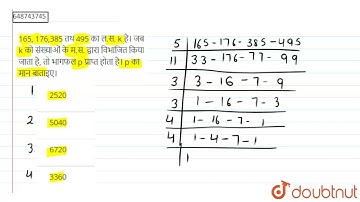 648743745
165, 176,385 तथ 495 का ल.स. k है। जब
k को संख्याओं के म.स. द्वारा विभाजित किया
जाता है, तो भागफल p प्राप्त होता है। p का
मान बताइए।
1 2520
2 5040
3 6720
4 3360
5 165-176-385-495
11 33-176-77-99
3 3-16-7-9
3 1-16-7-3
4 1-16-7-1
4 1-4-7-1
1
doubtnut